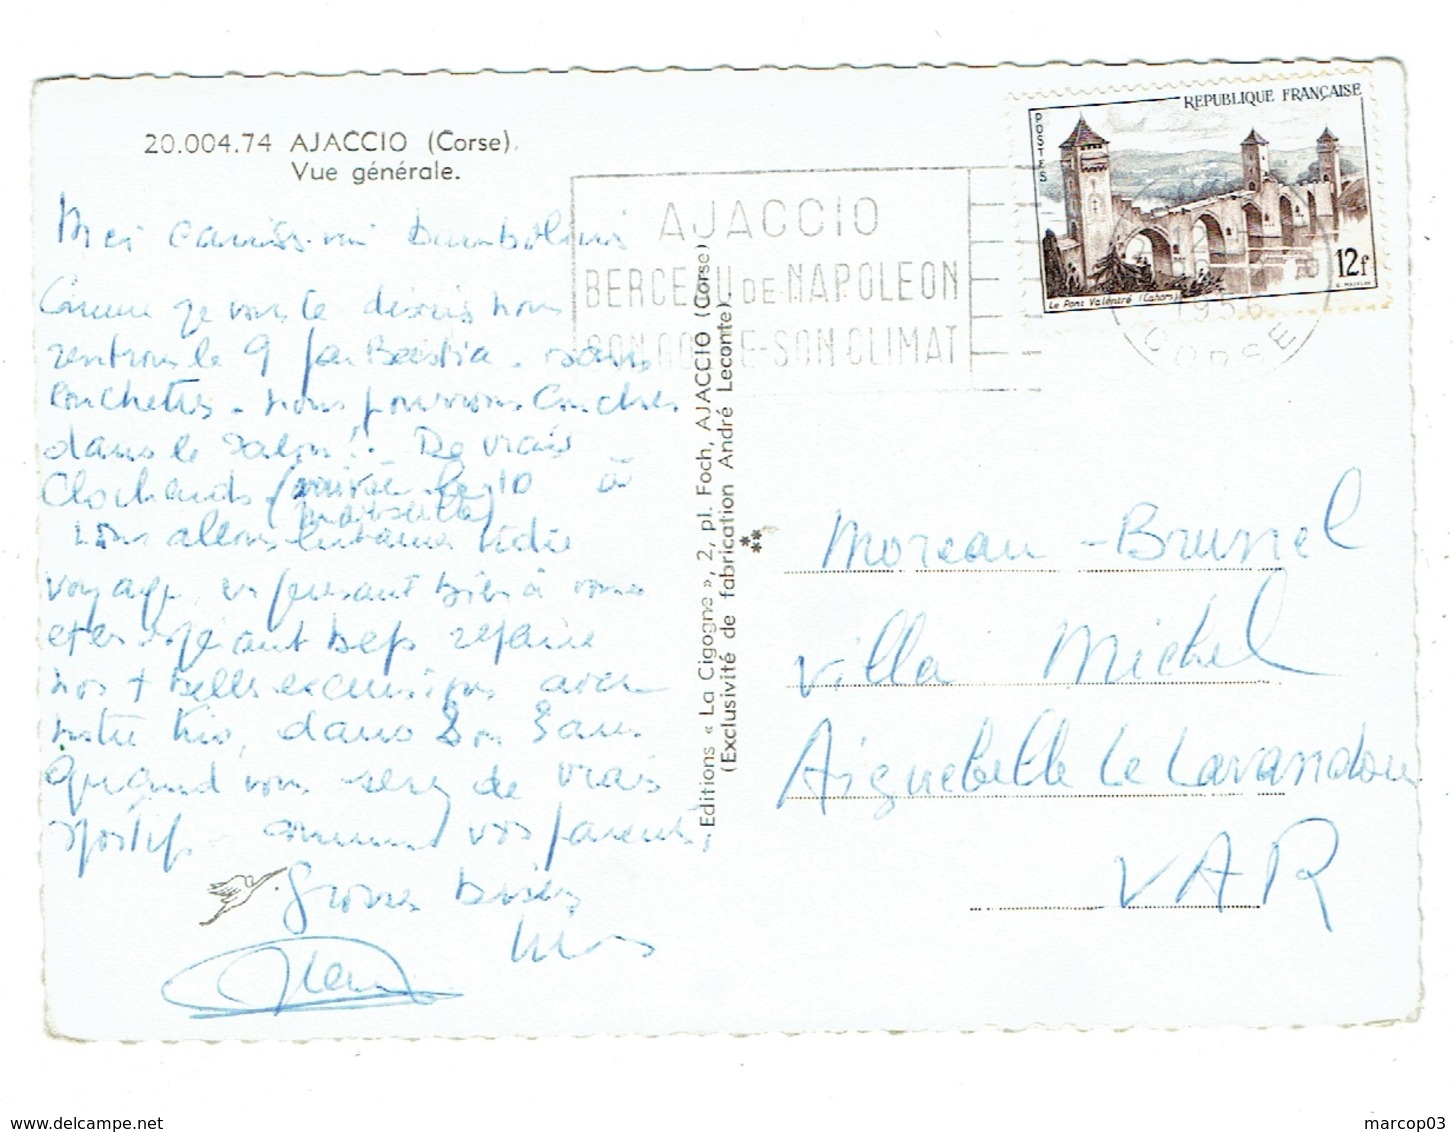 20.004.74 AJACCIO (Corse).
Vue générale.
REPUBLIQUE FRANÇAISE
POSTES
12f
Le Pont Valentré (Cahors)
AJACCIO
BERCEAU DE NAPOLEON
SON GOLFE-SON CLIMAT
1956
CORSE
Mes carissimi
Comme je vous le disais nous
rentrons le 9 par Bastia. sans
couchettes. nous pourrons coucher
dans le salon!. De vrais
clochards (arrivée le 10 à
Marseille)
nous allons entamer
voyage, en pensant bien à vous
et en refaire
nos + belles excursions avec
notre trio, dans 2 ou 3 ans
quand vous serez de vrais
sportifs comme vos parents,
Grosses bises
Editions « La Cigogne », 2, pl. Foch, AJACCIO (Corse)
(Exclusivité de fabrication André Leconte).
Moreau - Brunel
Villa Michel
Aiguebelle Le Lavandou
VAR
www.delcampe.net
marcop03